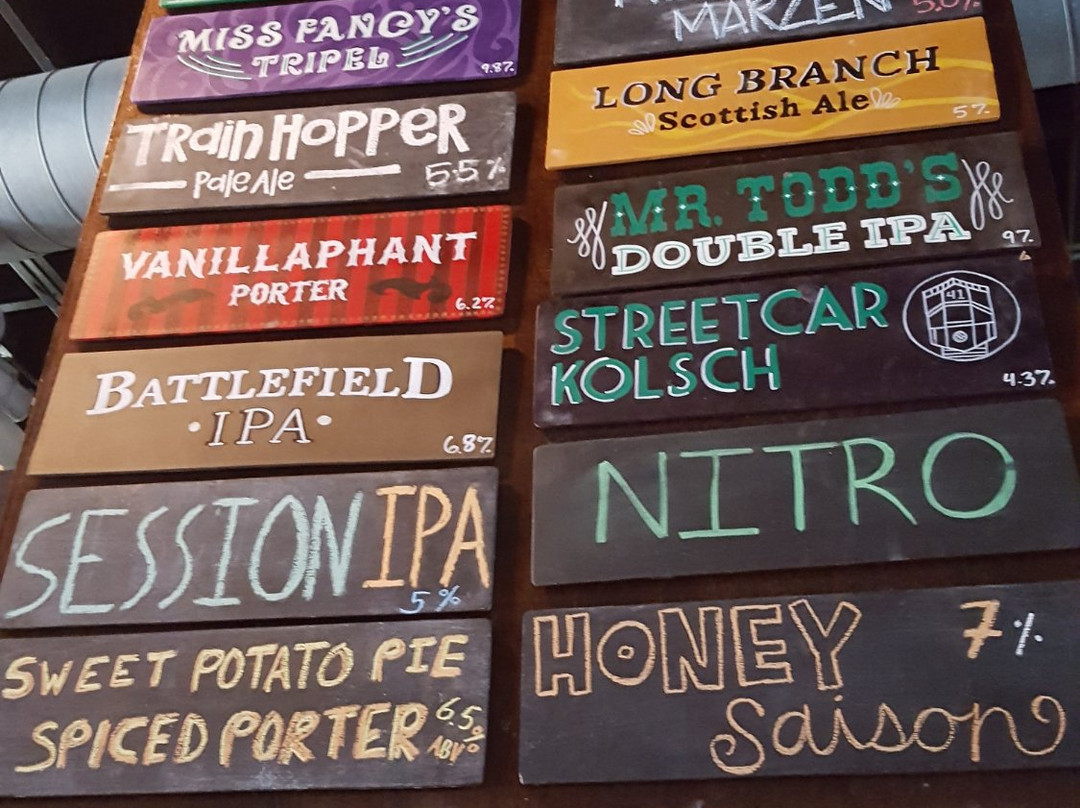 MISS FANCY'S
TRIPEL
9.8%
Train Hopper
Pale Ale
5.5%
VANILLAPHANT
PORTER
6.2%
BATTLEFIELD
•IPA•
6.8%
SESSION IPA
5%
SWEET POTATO PIE
SPICED PORTER
6.5%
ABV
MARZEN
5.0%
LONG BRANCH
Scottish Ale
5%
MR. TODD'S
DOUBLE IPA
9%
STREETCAR
KOLSCH
41
4.3%
NITRO
HONEY 7%
Saison